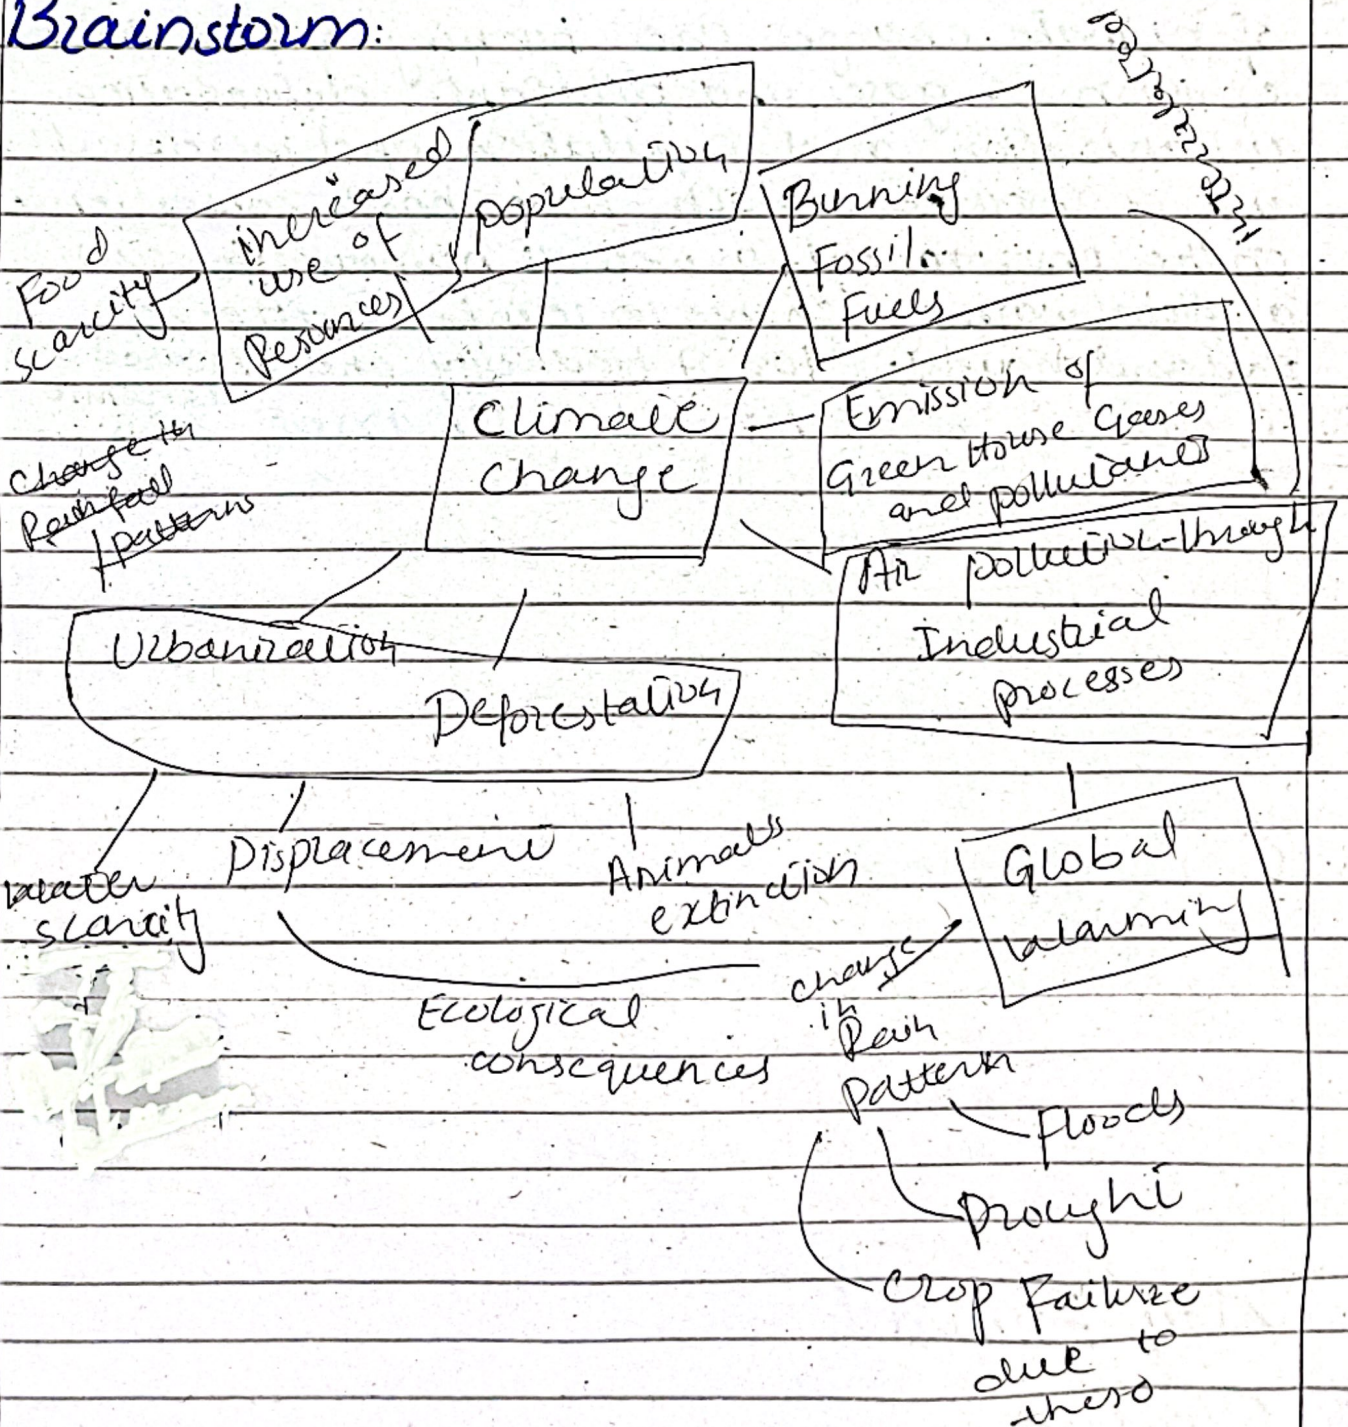 Brainstorm:
increased
use of
Resources
population
Burning
Fossil
Fuels
interrelated
Food
scarcity
Climate
change
Emission of
Green House Gases
and pollutants
Change in
Rainfall
patterns
Air pollution through
Industrial
processes
Urbanization
Deforestation
Water
scarcity
Displacement
Animals
extinction
Global
warming
Ecological
consequences
change
in
Rain
pattern
Floods
Drought
Crop Failure
due to
these